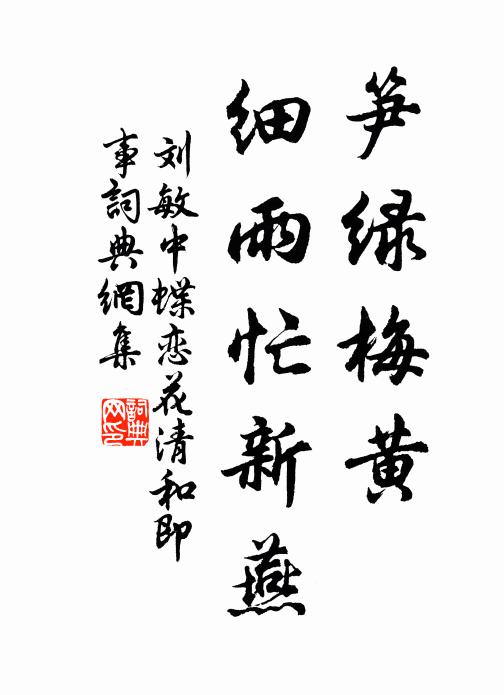 笋绿梅黄
细雨忙新燕
刘敏中蝶恋花清和即
事词典網集
詞典
网印